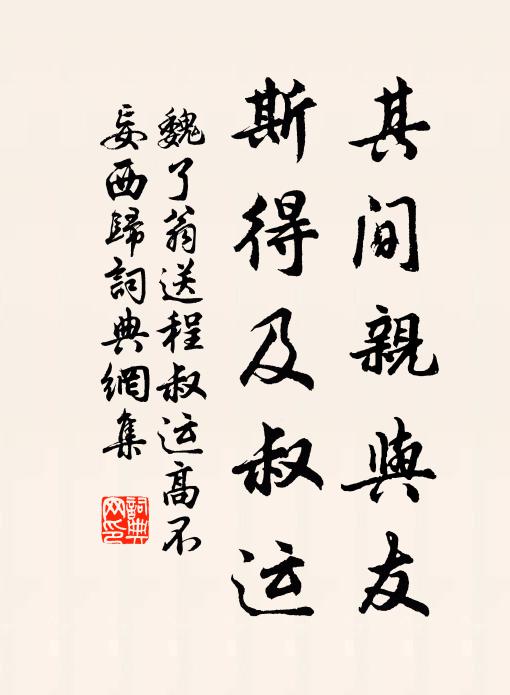 其间親與友
斯得及叔运
魏了翁送程叔运高不
妄西歸詞典網集
詞典
网印